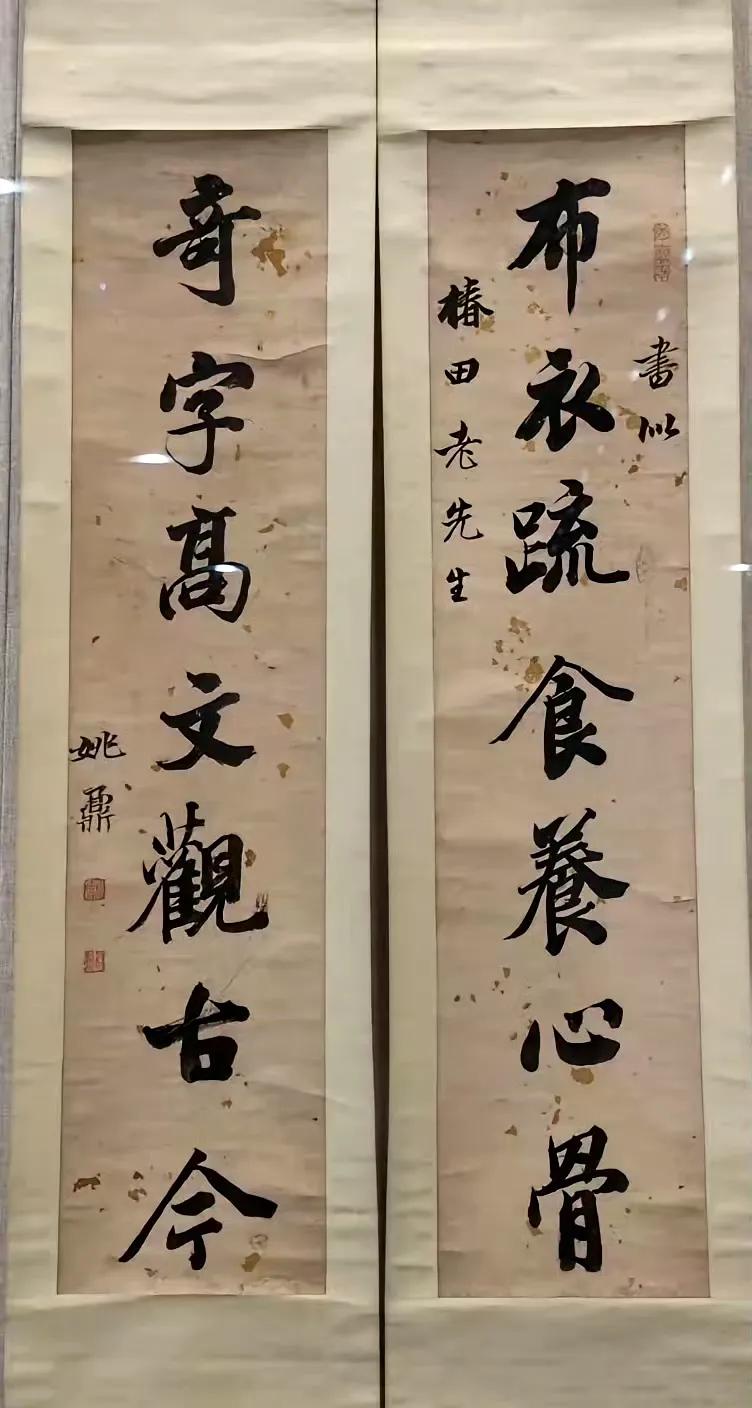 布衣蔬食養心骨
書似
椿田老先生
奇字高文觀古今
姚鼐